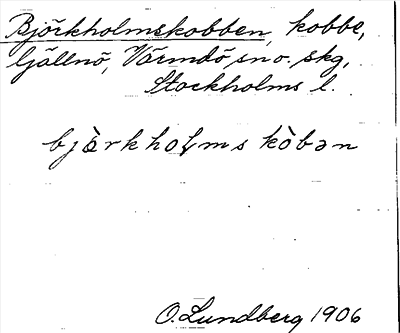 Björkholmskobben, kobbe,
Gällnö, Värmdö sn o. skg,
Stockholms l.
bjö̀rkholmskòbən
O. Lundberg 1906